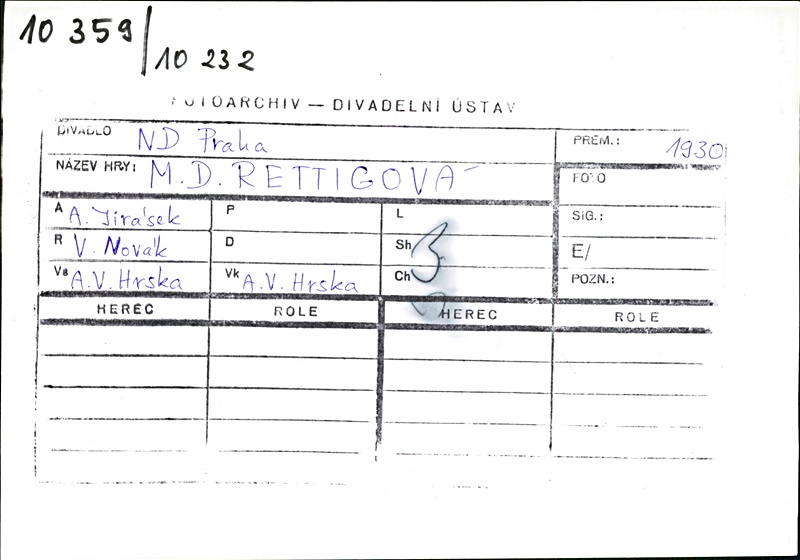 10 359/
10 232
FOTOARCHIV — DIVADELNÍ ÚSTAV
DIVADLO ND Praha PREM.: 1930
NÁZEV HRY: M. D. RETTIGOVÁ FOTO
A A. Jirásek P L SIG.:
R V. Novák D Sh 3 E/
Vs A.V. Hrska Vk A.V. Hrska Ch POZN.:
HEREC ROLE HEREC ROLE